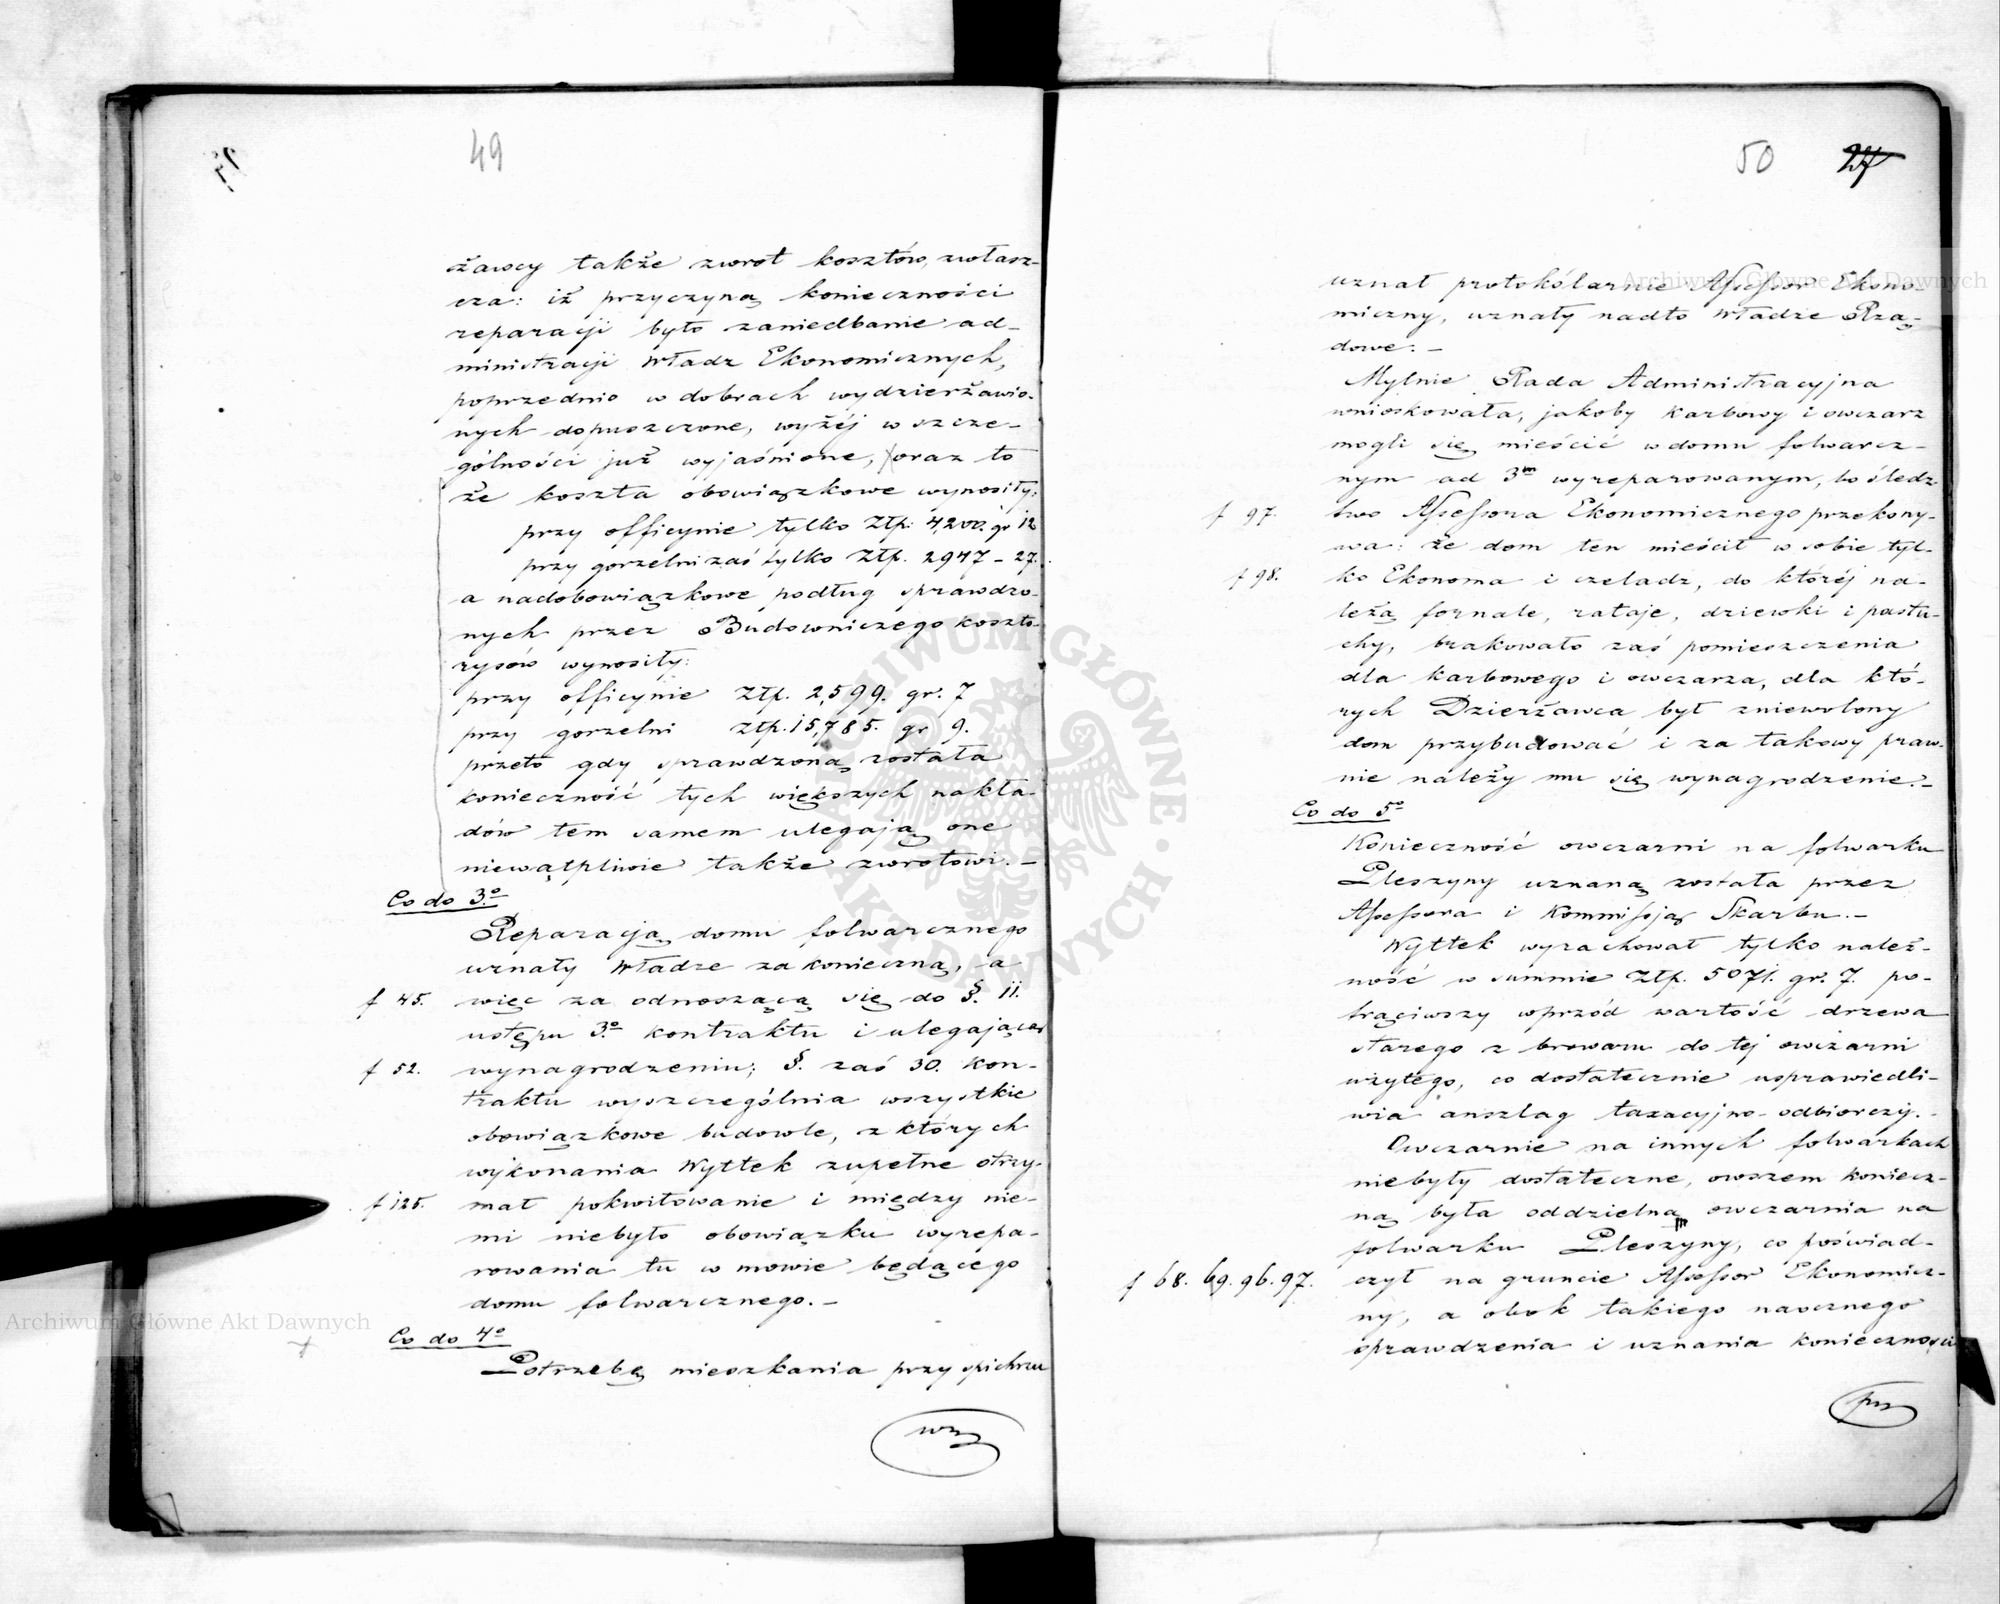 49
żawcy także zwrot kosztów, zwłasz-
cza: iż przyczyną konieczności
reparacji było zaniedbanie ad-
ministracji Władz Ekonomicznych,
poprzednio w dobrach wydzierżawio-
nych dopuszczone, wyżéj w szcze-
gólności już wyjaśnione, oraz to
że koszta obowiązkowe wynosiły:
przy officynie tylko Złp: 4,200. gr 12
przy gorzelni zaś tylko Złp. 2947 - 27.
a nadobowiązkowe podług sprawdzo-
nych przez Budowniczego koszto-
rysów wynosiły:
przy officynie Złp. 2,599. gr. 7
przy gorzelni Złp. 15,785. gr 9.
przeto gdy sprawdzoną została
konieczność tych większych nakła-
dów tem samem ulegają one
niewątpliwie także zwrotowi. -
Co do 3.o
Reparacją domu folwarcznego
uznały Władze za konieczną, a
f 45. więc za odnoszącą się do §. 11.
ustępu 3.o kontraktu i ulegającą
f 52. wynagrodzeniu; §. zaś 30. kon-
traktu wyszczególnia wszystkie
obowiązkowe budowle, z których
wykonania Wyttek zupełne otrzy-
f 125. mał pokwitowanie i między nie-
mi niebyło obowiązku wyrepa-
rowania tu w mowie będącego
domu folwarcznego. -
Co do 4o
Potrzebę mieszkania przy spichrzu
50 27
uznał protokólarnie Assessor Ekono-
miczny, uznały nadto Władze Rzą-
dowe. -
Mylnie Rada Administracyjna
wnioskowała, jakoby karbowy i owczarz
mogli się mieścić w domu folwarcz-
nym ad 3m wyreparowanym, bo śledz
f 97. two Assessora Ekonomicznego przekony-
wa: że dom ten mieścił w sobie tyl-
f 98. ko Ekonoma i czeladz, do któréj na-
leżą fornale, rataje, dziewki i pastu-
chy, brakowało zaś pomieszczenia
dla karbowego i owczarza, dla któ-
rych Dzierżawca był zniewolony
dom przybudować i za takowy praw-
nie należy mu się wynagrodzenie. -
Co do 5o
Konieczność owczarni na folwarku
Pleszyny uznaną została przez
Assessora i Kommissją Skarbu. -
Wyttek wyrachował tylko należ-
ność w summie Złp. 5071. gr. 7. po-
trąciwszy wprzód wartość drzewa
starego z browaru do téj owczarni
użytego, co dostatecznie usprawiedli-
wia anszlag taxacyjno-odbiorczy. -
Owczarnie na innych folwarkach
niebyły dostateczne, owszem koniecz-
ną była oddzielna owczarnia na
folwarku Pleszyny, co poświad-
f 68. 69. 96. 97. czył na gruncie Assessor Ekonomicz-
ny, a obok takiego naocznego
sprawdzenia i uznania konieczności
Archiwum Główne Akt Dawnych
Archiwum Główne Akt Dawnych
ARCHIWUM GŁÓWNE AKT DAWNYCH